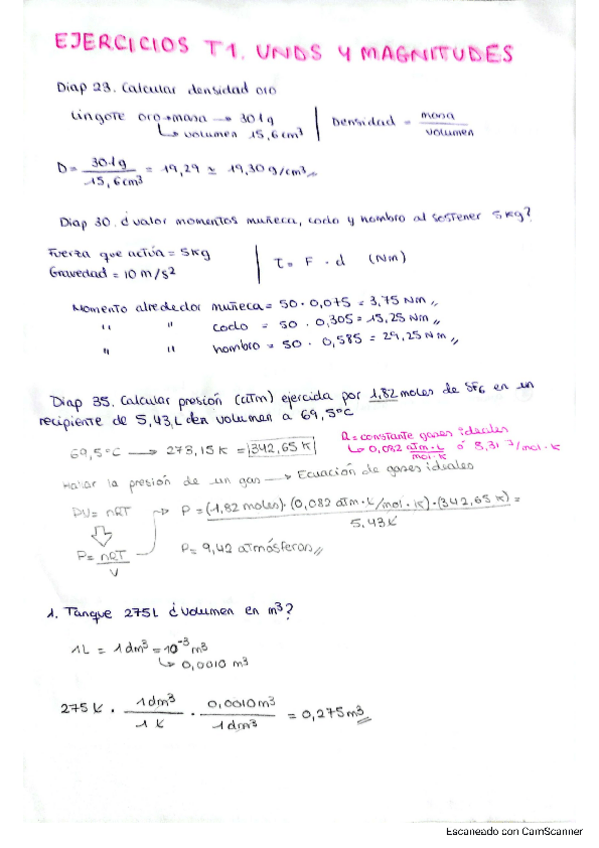 EJERCICIOS T1. UNDS Y MAGNITUDES
Diap 23. Calcular densidad oro
Lingote oro → masa → 301g
↳ volumen 15,6cm³
Densidad = masa / volumen
D = 301g / 15,6cm³ = 19,29 ≃ 19,30 g/cm³,,
Diap 30. ¿valor momentos muñeca, codo y hombro al sostener 5Kg?
Fuerza que actúa = 5Kg
Gravedad = 10 m/s²
τ = F · d (Nm)
Momento alrededor muñeca = 50 · 0,075 = 3,75 Nm,,
" " codo = 50 · 0,305 = 15,25 Nm,,
" " hombro = 50 · 0,585 = 29,25 Nm,,
Diap 35. Calcular presión (atm) ejercida por 1,82 moles de SF6 en un
recipiente de 5,43 L den volumen a 69,5ºC
69,5ºC → 273,15K = 342,65K
R = constante gases ideales
↳ 0,082 atm·L / mol·K ó 8,31 J/mol·K
Hallar la presión de un gas → Ecuación de gases ideales
PV = nRT → P = (1,82 moles)·(0,082 atm·L/mol·K)·(342,65 K) / 5,43L =
P = nRT / V
P = 9,42 atmósferas,,
1. Tanque 275L ¿Volumen en m³?
1L = 1dm³ = 10⁻³ m³
↳ 0,0010 m³
275 L · 1dm³ / 1 L · 0,0010m³ / 1dm³ = 0,275m³
Escaneado con CamScanner